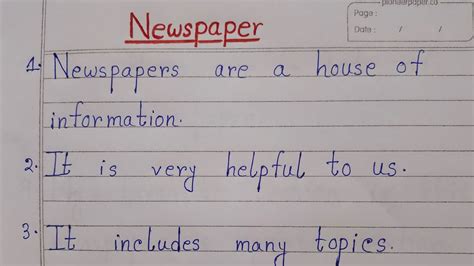 pioneerpaper.co
Newspaper
Page :
Date : / /
1. Newspapers are a house of
information.
2. It is very helpful to us.
3. It includes many topics.